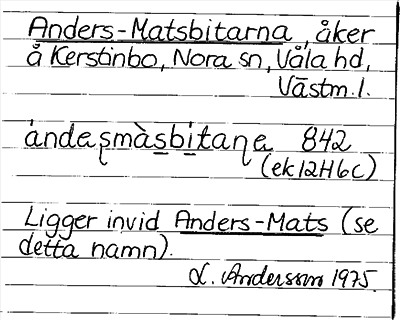 Anders-Matsbitarna, åker
å Kerstinbo, Nora sn, Våla hd,
Västm.l.
ándaʂmàsbitaɳa 842
(ek 12H6C)
Ligger invid Anders-Mats (se
detta namn).
L. Andersson 1975